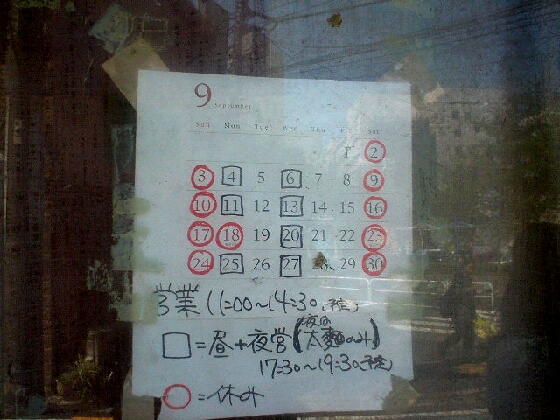 9 September
Sun Mon Tue Wed Thu Fri Sat
1 2
3 4 5 6 7 8 9
10 11 12 13 14 15 16
17 18 19 20 21 22 23
24 25 26 27 28 29 30
営業 11:00〜14:30(予定)
□=昼+夜営(夜は太麺のみ)
17:30〜19:30(予定)
○=休み